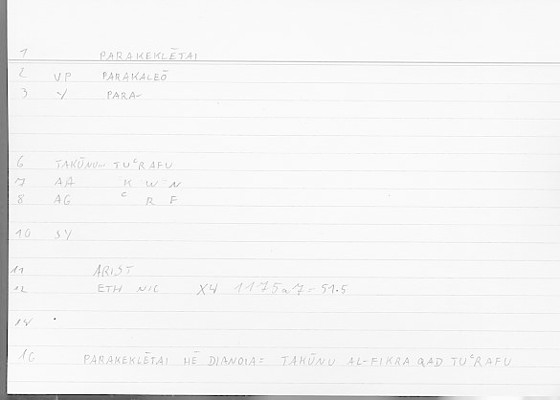 1 PARAKEKLĒTAI
2 VP PARAKALEŌ
3 -/ PARA-
6 TAKŪNU- TUᶜRAFU
7 AA K W N
8 AG ᶜ R F
10 SY
11 ARIST
12 ETH NIC X4 1175a7 = 51.5
14 .
16 PARAKEKLĒTAI HĒ DIANOIA = TAKŪNU AL-FIKRA QAD TUᶜRAFU